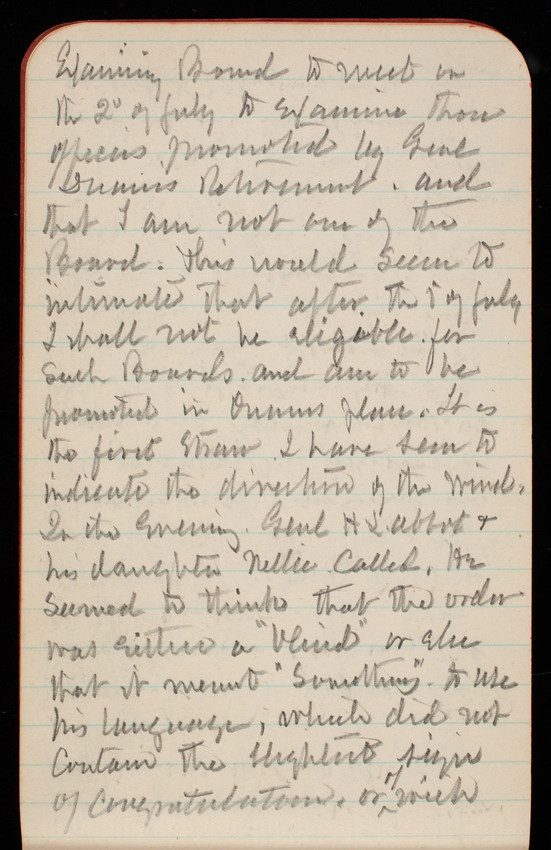 Examining Board to meet on
the 2d of July to examine those
officers promoted by Genl
Duanes Retirement. and
that I am not one of the
Board. This would seem to
intimate that after the 5 of July
I shall not be eligible for
such Boards. and am to be
promoted in Duanes place. It is
the first Straw I have seen to
indicate the direction of the wind.
In the Evening Genl H L Abbot &
his daughter Nellie Called. He
seemed to think that the order
was either a "blind" or else
that it meant "Something". to use
his language, which did not
Contain the slightest sign
of Congratulation. or of wish